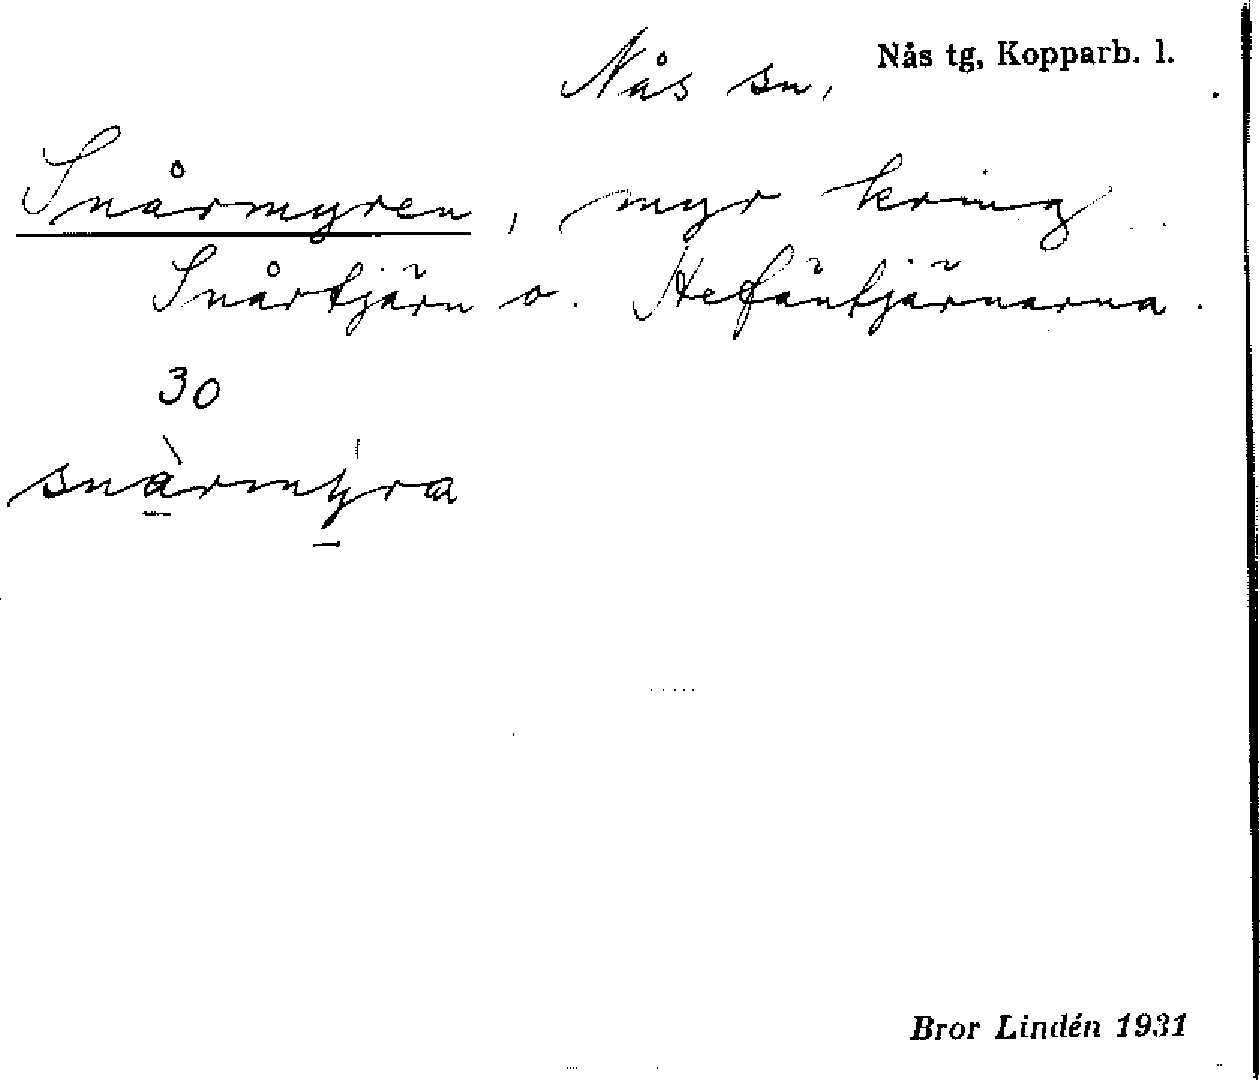 Nås tg, Kopparb. l.
Nås sn,
Snårmyren, myr kring
Snårtjärn o. Stefäntjärnarna.
30
snàrmýra
Bror Lindén 1931